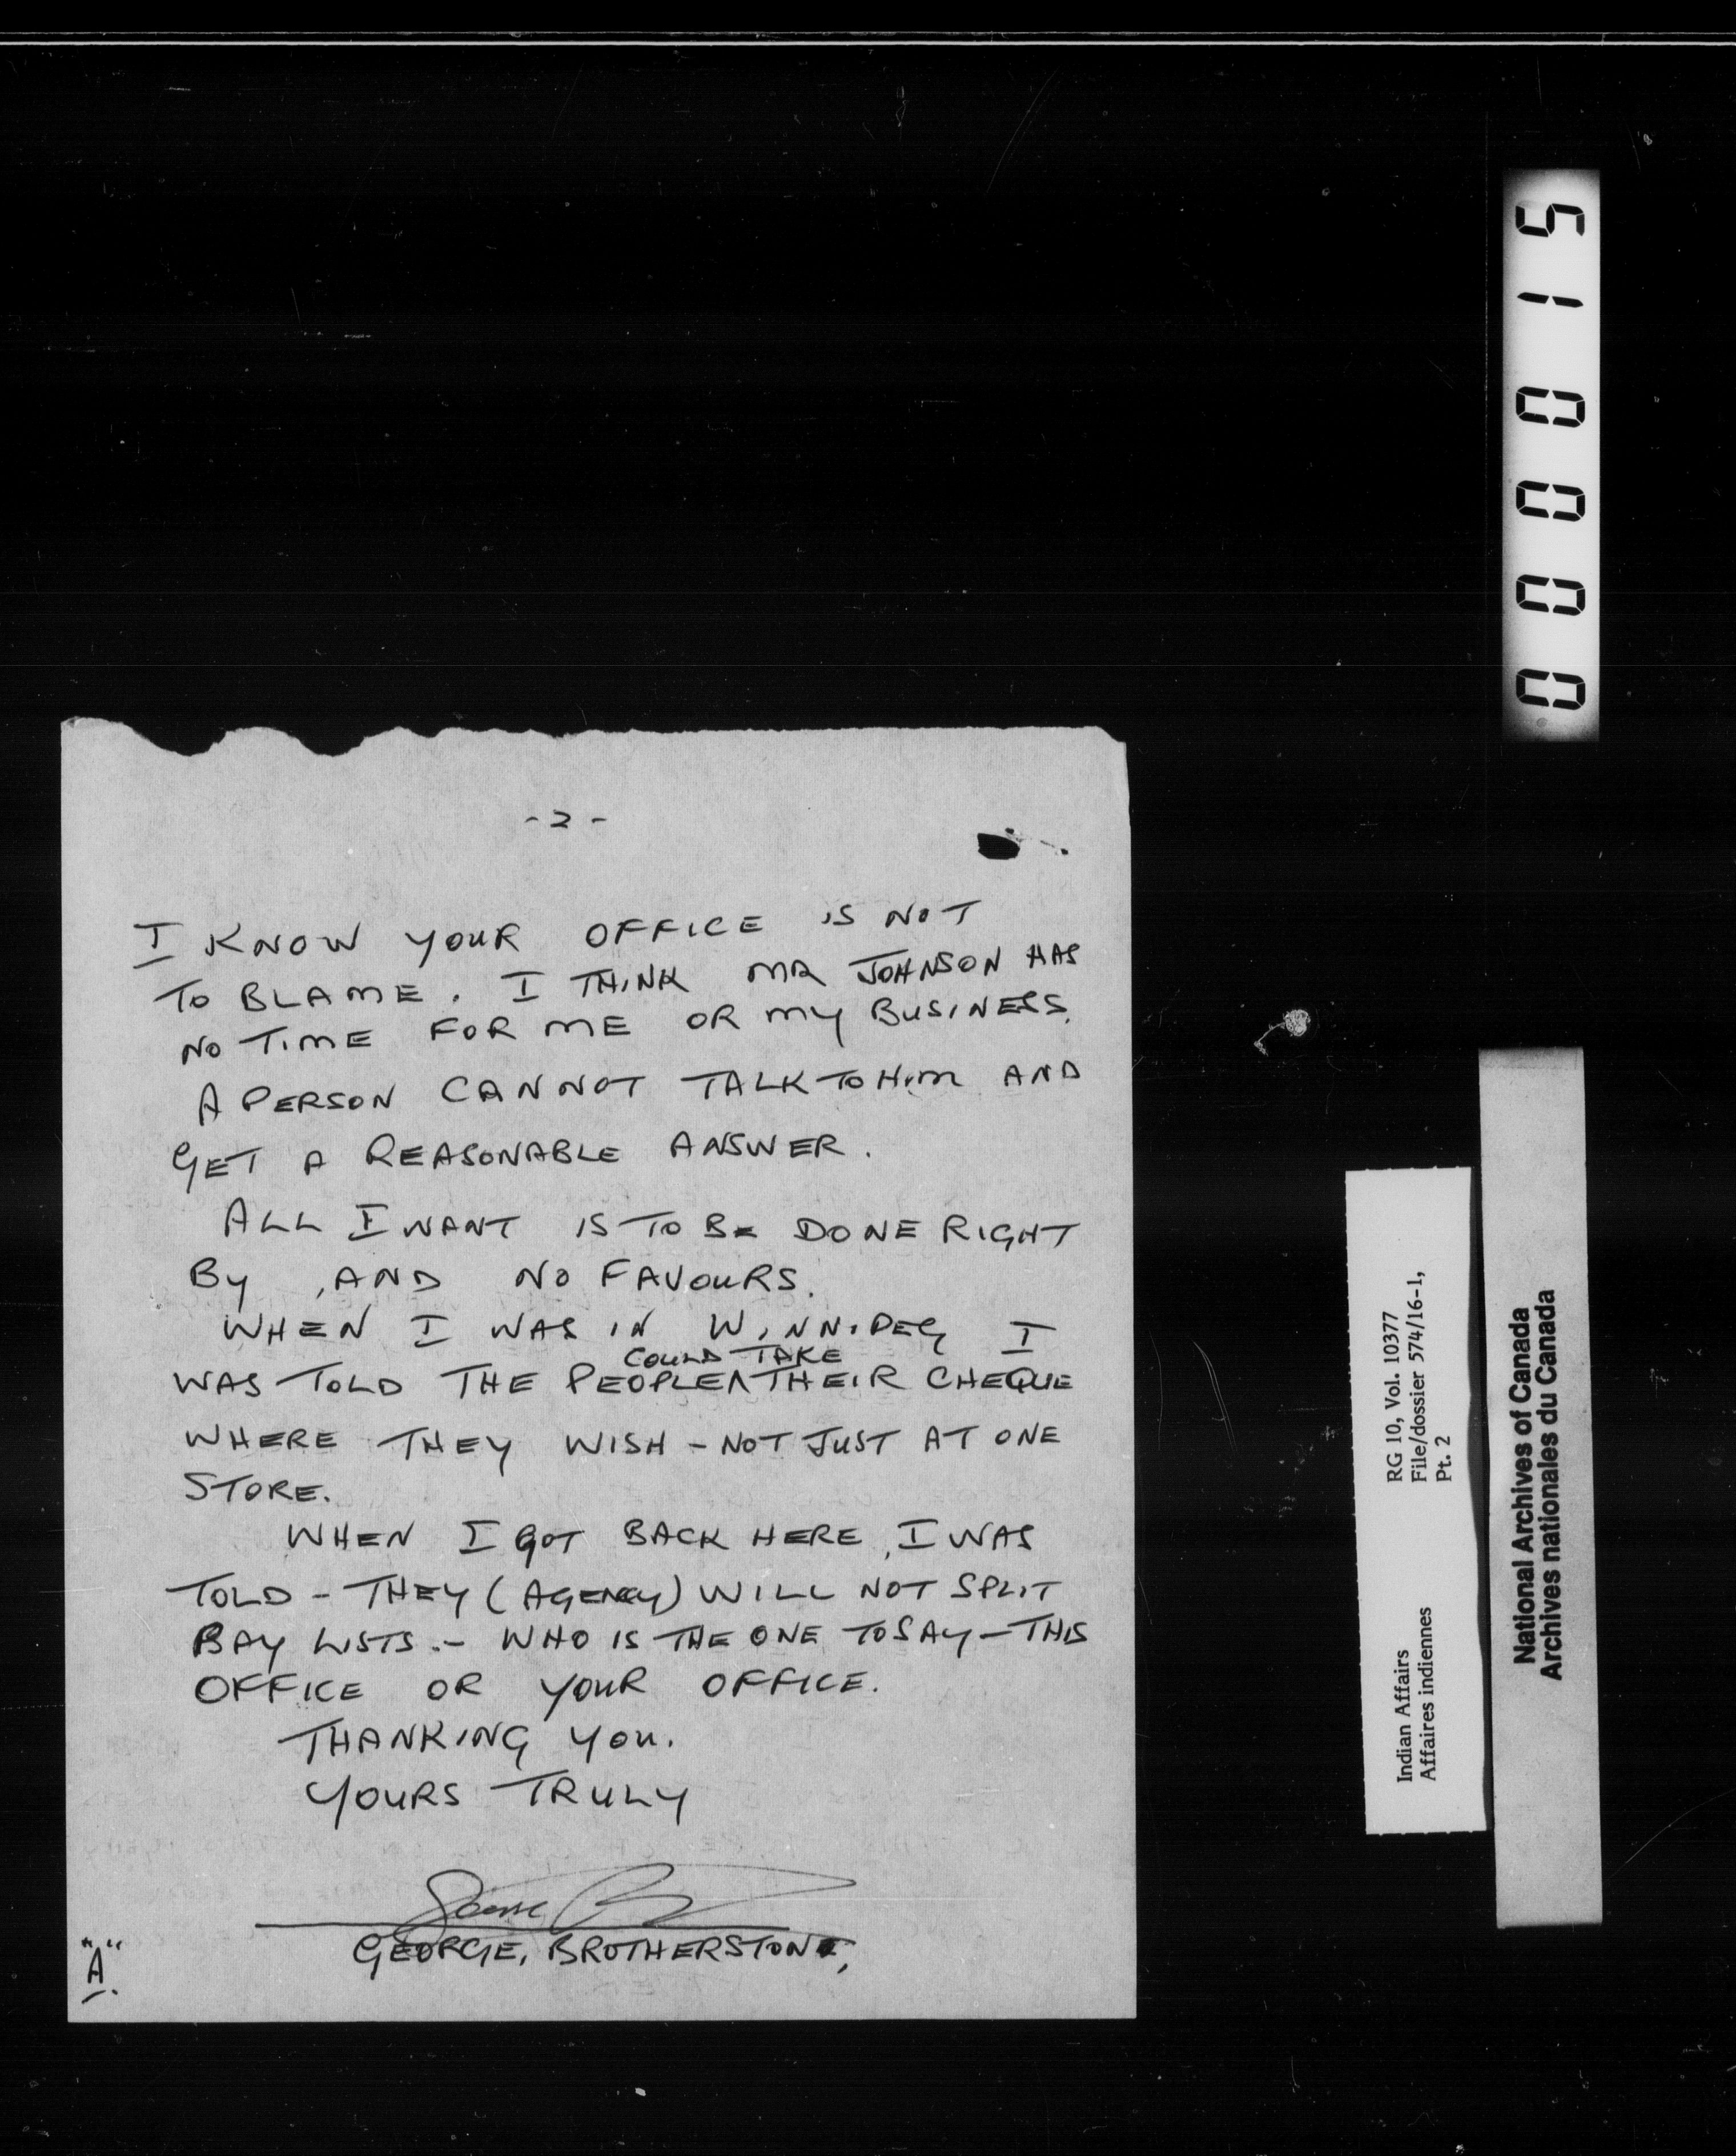 - 2 -
I KNOW YOUR OFFICE IS NOT
TO BLAME. I THINK MR JOHNSON HAS
NO TIME FOR ME OR MY BUSINESS.
A PERSON CANNOT TALK TO HIM AND
GET A REASONABLE ANSWER.
ALL I WANT IS TO BE DONE RIGHT
BY, AND NO FAVOURS.
WHEN I WAS IN WINNIPEG I
COULD TAKE
WAS TOLD THE PEOPLE THEIR CHEQUE
WHERE THEY WISH - NOT JUST AT ONE
STORE.
WHEN I GOT BACK HERE, I WAS
TOLD - THEY (AGENCY) WILL NOT SPLIT
BAY LISTS. - WHO IS THE ONE TO SAY - THIS
OFFICE OR YOUR OFFICE.
THANKING YOU.
YOURS TRULY
GEORGE, BROTHERSTONE,
"A"
000015
RG 10, Vol. 10377
File/dossier 574/16-1,
Pt. 2
Indian Affairs
Affaires indiennes
National Archives of Canada
Archives nationales du Canada